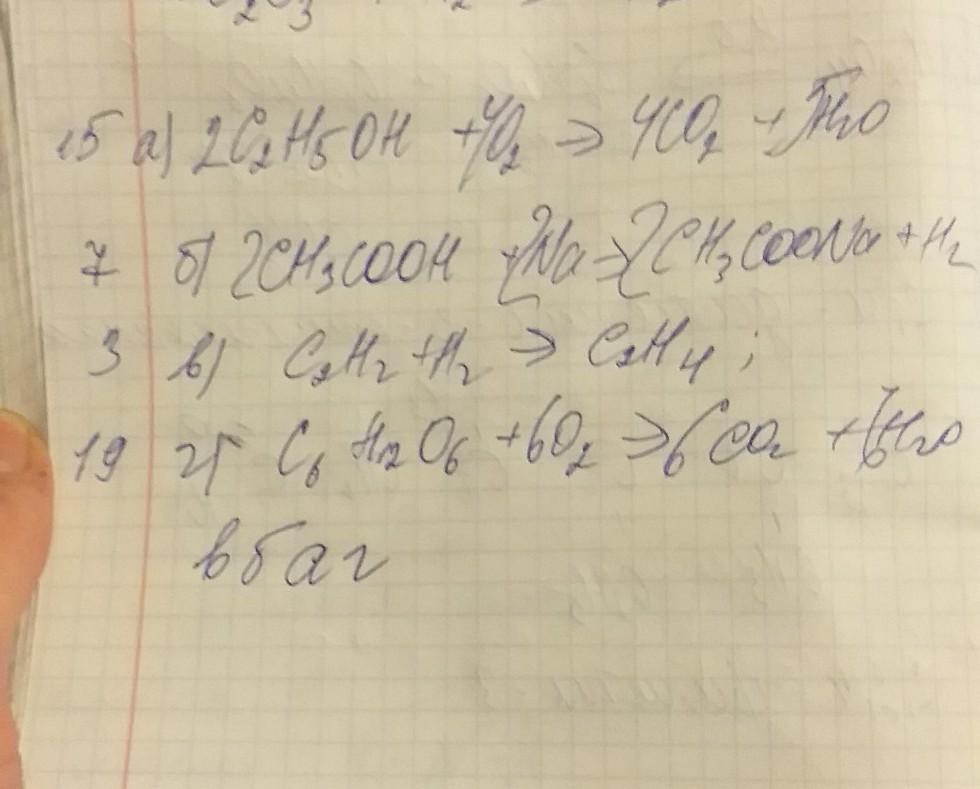 15 а) 2C₂H₅OH + 7O₂ ⇒ 4CO₂ + 5H₂O
7 б) 2CH₃COOH + 2Na ⇒ 2CH₃COONa + H₂
3 в) C₂H₂ + H₂ ⇒ C₂H₄ ;
19 г) C₆H₁₂O₆ + 6O₂ ⇒ 6CO₂ + 6H₂O
в б а г